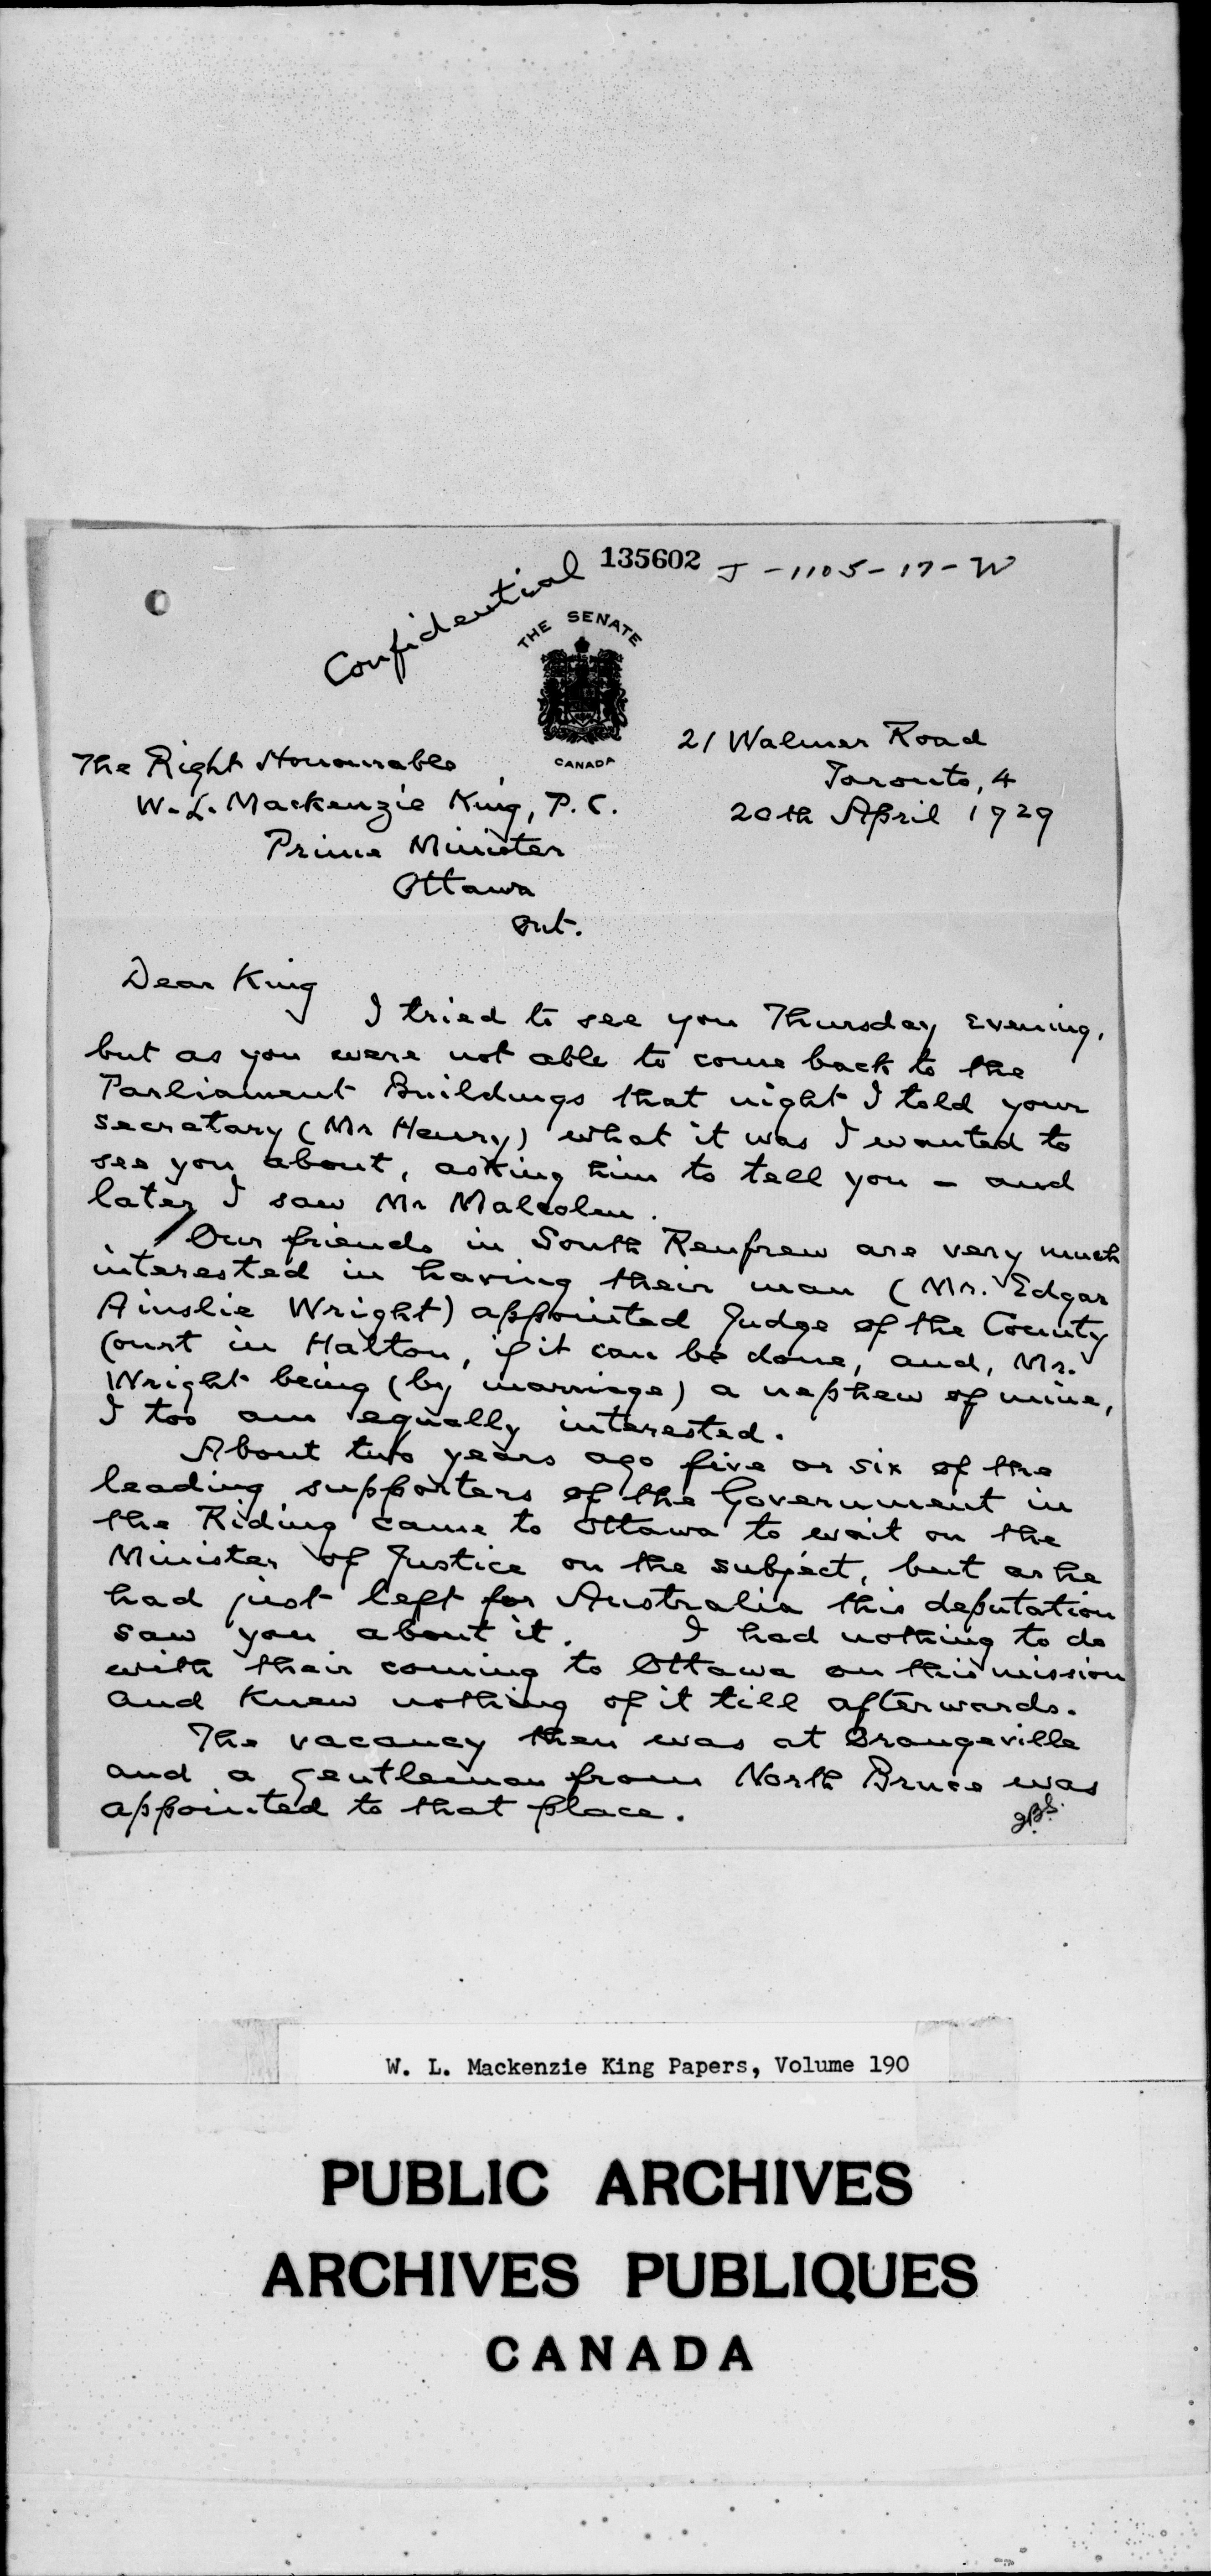 135602 J-1105-17-W
Confidential
THE SENATE
CANADA
21 Walmer Road
Toronto, 4
20th April 1929
The Right Honourable
W. L. Mackenzie King, P.C.
Prime Minister
Ottawa
Ont.
Dear King
I tried to see you Thursday evening,
but as you were not able to come back to the
Parliament Buildings that night I told your
secretary (Mr Henry) what it was I wanted to
see you about, asking him to tell you - and
later I saw Mr Malcolm.
Our friends in South Renfrew are very much
interested in having their man (Mr. Edgar
Ainslie Wright) appointed Judge of the County
Court in Halton, if it can be done, and, Mr.
Wright being (by marriage) a nephew of mine,
I too am equally interested.
About two years ago five or six of the
leading supporters of the Government in
the Riding came to Ottawa to wait on the
Minister of Justice on the subject, but as he
had just left for Australia this deputation
saw you about it. I had nothing to do
with their coming to Ottawa on this mission
and knew nothing of it till afterwards.
The vacancy then was at Orangeville
and a gentleman from North Bruce was
appointed to that place.
W. L. Mackenzie King Papers, Volume 190
PUBLIC ARCHIVES
ARCHIVES PUBLIQUES
CANADA